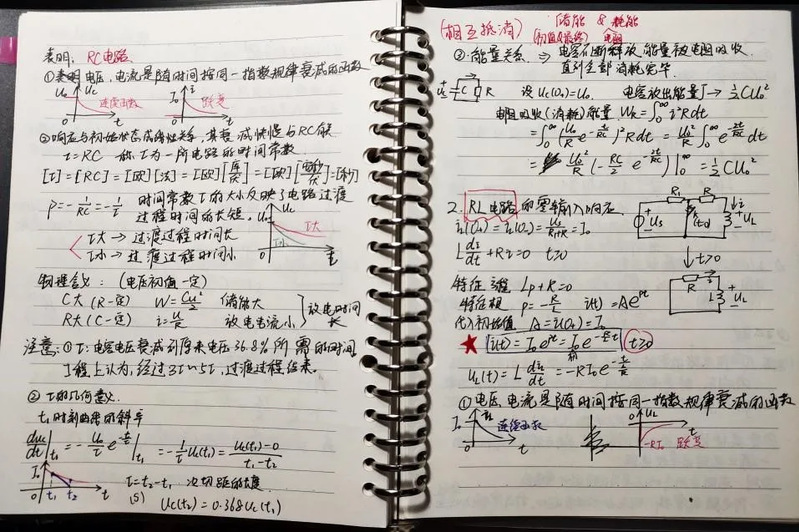 表明: RC电路
①表明电压、电流是随时间按同一指数规律衰减的函数
U₀ Uc 连续函数 0 t I₀ i 跃变 0 t
②响应与初始状态成线性关系,其衰减快慢与RC有关
τ=RC 一称τ为一阶电路的时间常数
[τ]=[RC]=[欧][法]=[欧][库/伏]=[欧][安秒/伏]=[秒]
p=-1/RC=-1/τ 时间常数τ的大小反映了电路过渡
过程时间的长短.
τ大→过渡过程时间长
τ小→过渡过程时间小
U₀ Uc τ大 τ小 0 t
物理含义: (电压初值一定)
C大(R一定) W=Cu²/2 储能大
R大(C一定) i=u/R 放电电流小
放电时间长
注意:①τ:电容电压衰减到原来电压36.8%所需的时间
工程上认为,经过3τ~5τ,过渡过程结束。
②τ的几何意义
t₁时刻曲线的斜率
duc/dt|t₁=-U₀/τ e^(-t/τ)|t₁=-1/τ Uc(t₁)=Uc(t₁)-0/t₁-t₂
I₀ 0 t₁ t₂ t
τ=t₂-t₁ 次切距的长度
Uc(t₂)=0.368Uc(t₁)
(相互抵消) 储能 & 耗能
电阻
③能量关系 ⇒ 电容不断释放能量被电阻吸收,
直到全部消耗完毕.
C R
设Uc(0₊)=U₀ 电容放出能量 → ½CU₀²
电阻吸收(消耗)能量 W_R=∫₀^∞ i²Rdt
=∫₀^∞(U₀/R e^(-t/RC))²Rdt=U₀²/R∫₀^∞ e^(-2t/RC)dt
=U₀²/R(-RC/2 e^(-2t/RC))|₀^∞=½CU₀²
2. RL电路的零输入响应
i_L(0₊)=i_L(0₋)=Us/R₁+R=I₀
L di/dt+Ri=0 t≥0
Us R₁ R i L U_L
t>0
R i L U_L
特征方程 Lp+R=0
特征根 p=-R/L i(t)=Ae^(pt)
代入初始值 A=i(0₊)=I₀
★ i(t)=I₀e^(pt)=I₀e^(-R/L t) t≥0
U_L(t)=L di/dt=-RI₀e^(-t/(L/R))
①电压、电流是随时间按同一指数规律衰减的函数
I₀ i_L 连续函数 0 t U_L 0 t -RI₀ 跃变